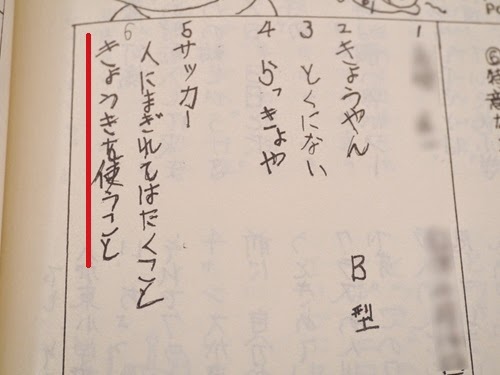 1
2 きょうやん B型
3 とくにない
4 らっきょや
5 サッカー
6 人にまぎれてはたくこと
きょうきを使うこと